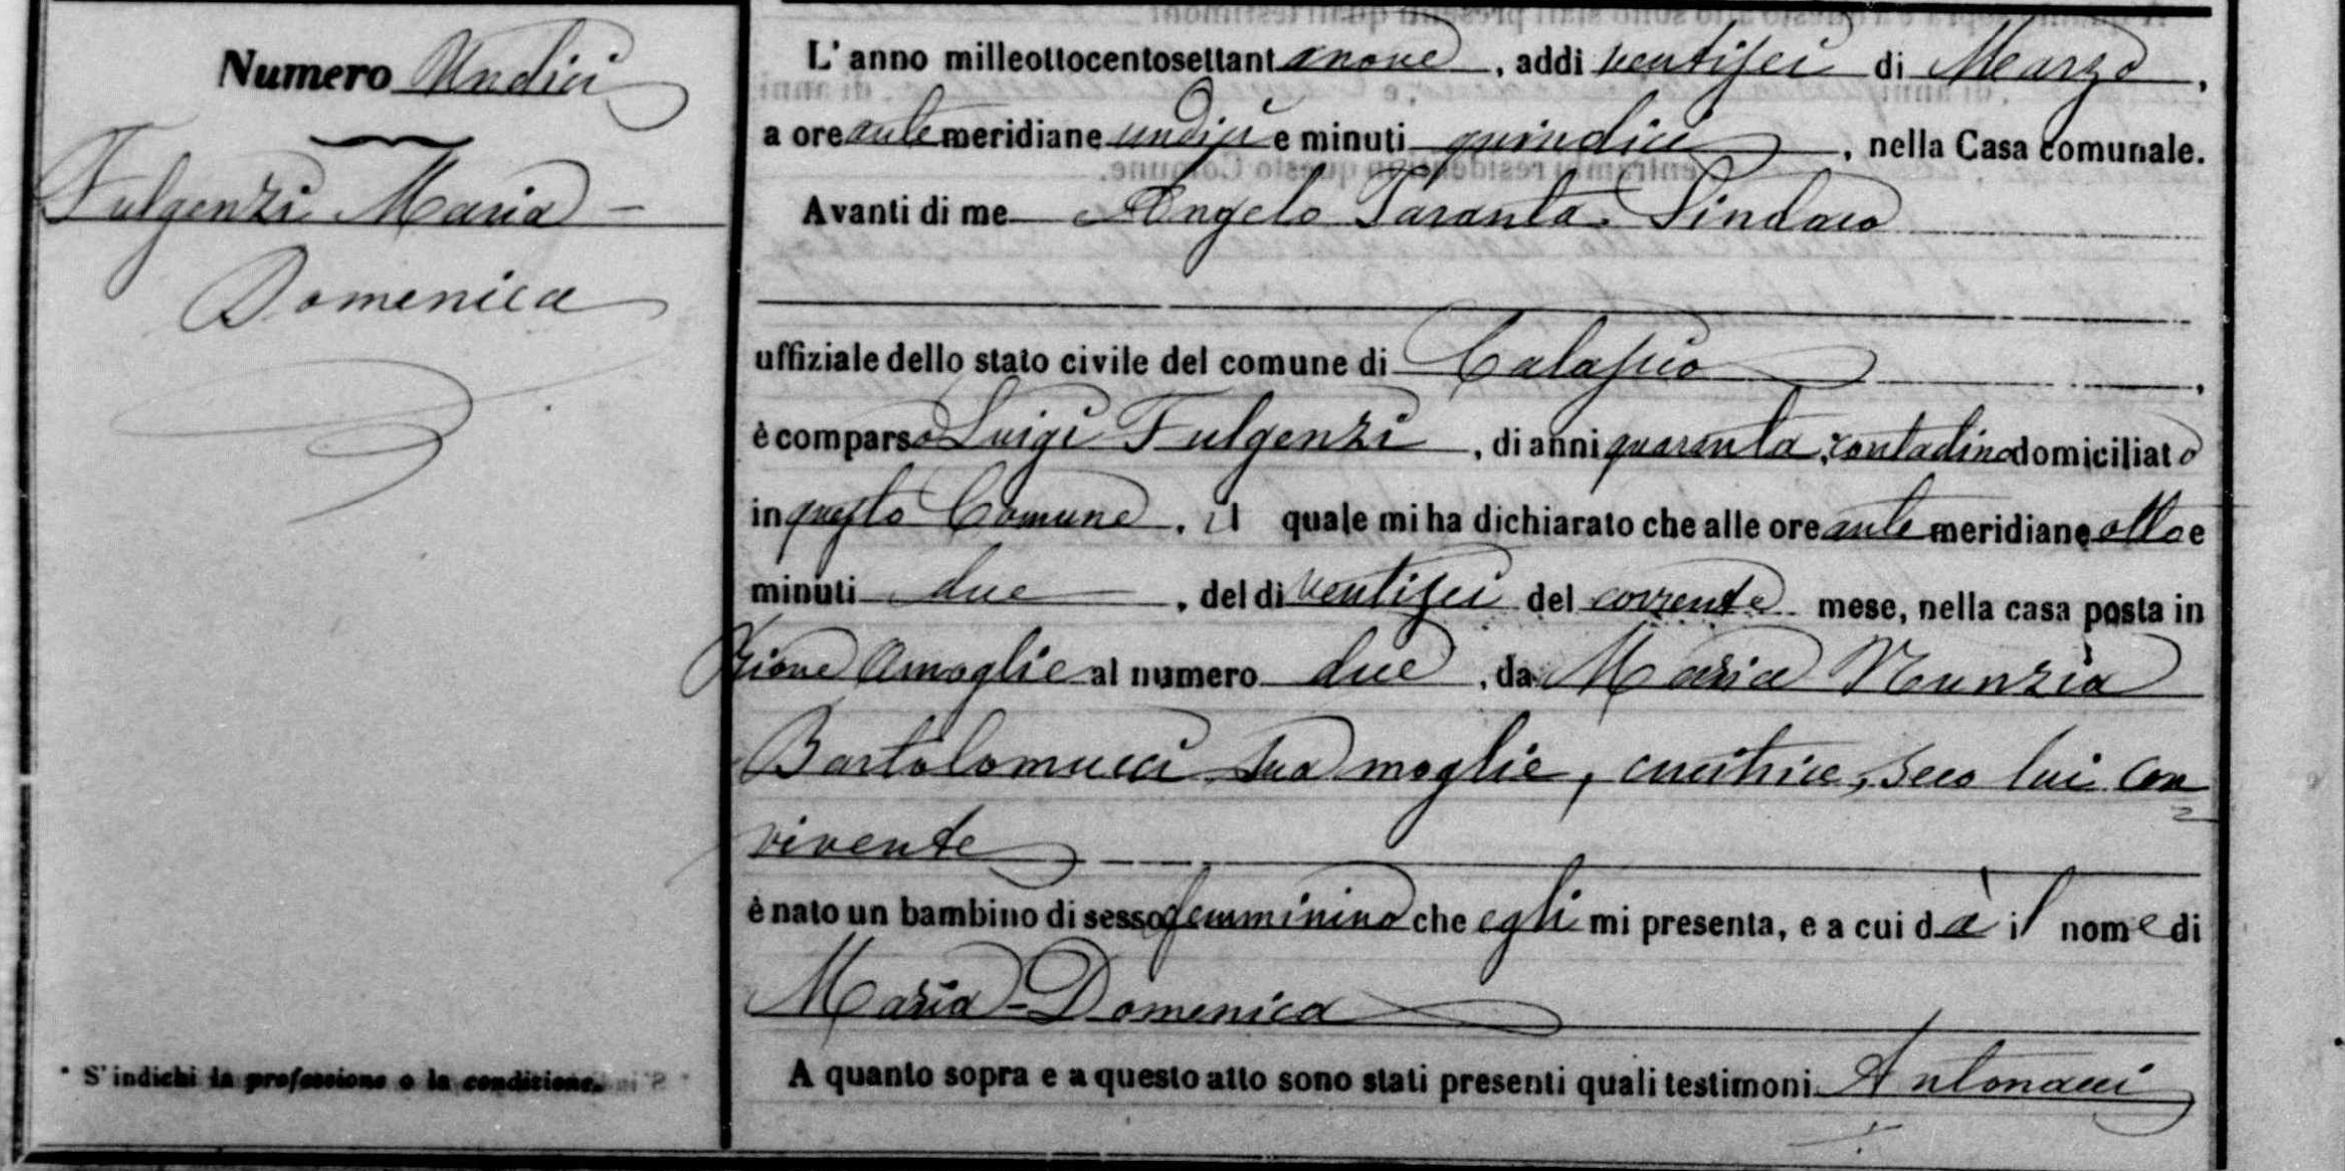 Numero Undici
Fulgenzi Maria -
Domenica
* S'indichi la professione o la condizione.
L'anno milleottocentosettantanove, addi ventisei di Marzo,
a ore antemeridiane undici e minuti quindici, nella Casa comunale.
Avanti di me Angelo Taranta Sindaco
uffiziale dello stato civile del comune di Calascio,
è comparso Luigi Fulgenzi, di anni quaranta, contadino domiciliato
in questo Comune, il quale mi ha dichiarato che alle ore antemeridiane otto e
minuti due, del di ventisei del corrente mese, nella casa posta in
al numero due, da Maria Nunzia
Bartolomucci sua moglie, cucitrice, seco lui con
vivente
è nato un bambino di sesso femminino che egli mi presenta, e a cui dà il nome di
Maria-Domenica
A quanto sopra e a questo atto sono stati presenti quali testimoni Antonacci